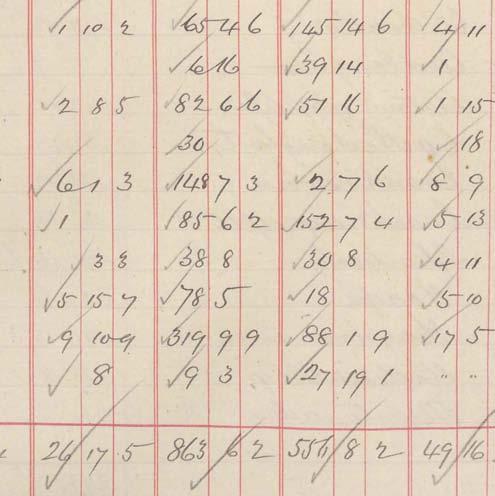 1 10 2 65 4 6 145 14 6 4 11
6 16 39 14 1
2 8 5 82 6 6 51 16 1 15
30 18
6 1 3 148 7 3 2 7 6 8 9
1 85 6 2 152 7 4 5 13
3 3 38 8 30 8 4 11
5 15 7 78 5 18 5 10
9 10 9 319 9 9 88 1 9 17 5
8 9 3 27 19 1 " "
26 17 5 863 6 2 556 8 2 49 16